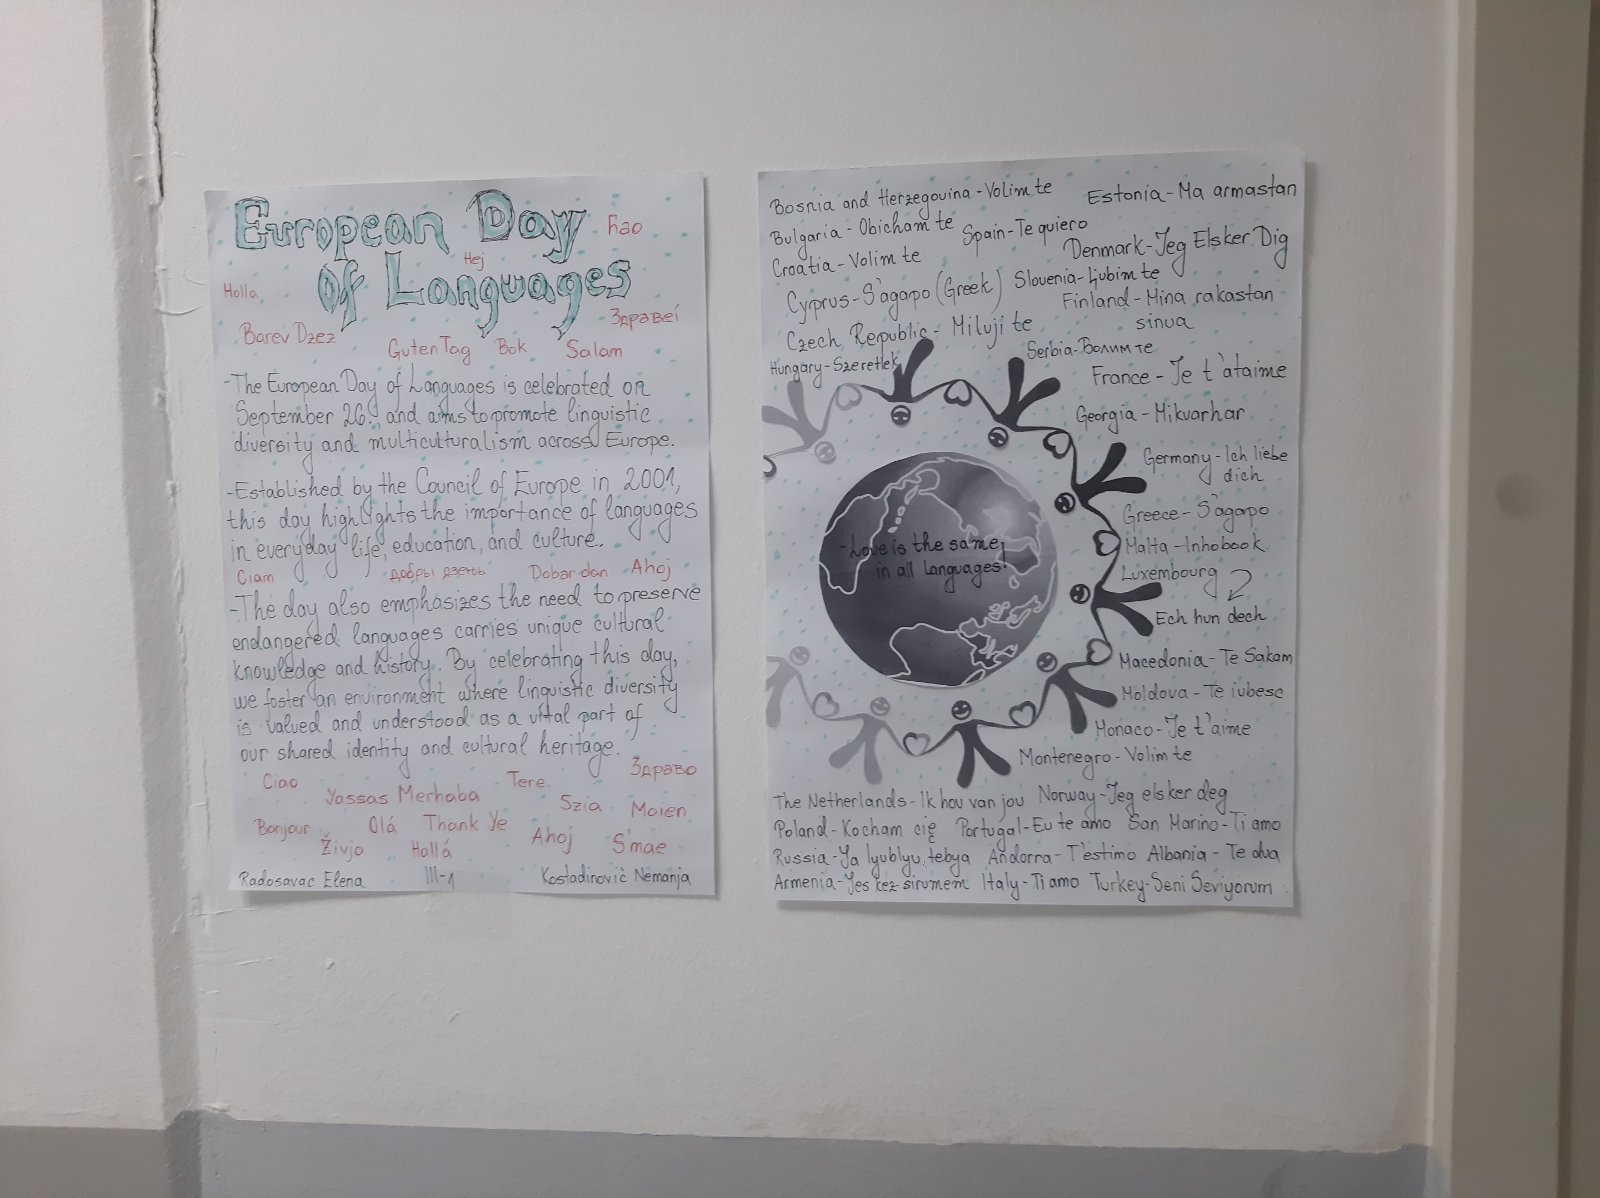 European Day
ћао
of Languages
Hej
Holla
Здравеі
Barev Dzez
Guten Tag
Bok
Salam
-The European Day of Languages is celebrated on
September 26., and aims to promote linguistic
diversity and multiculturalism across Europe.
-Established by the Council of Europe in 2001,
this day highlights the importance of languages
in everyday life, education, and culture.
Ciam
добры дзень
Dobar dan
Ahoj
-The day also emphasizes the need to preserve
endangered languages carries unique cultural
knowledge and history. By celebrating this day,
we foster an environment where linguistic diversity
is valued and understood as a vital part of
our shared identity and cultural heritage.
Ciao
Tere
Здраво
Yassas
Merhaba
Szia
Moien
Bonjour
Olá
Thank Ye
Živjo
Hallá
Ahoj
S'mae
Radosavac Elena
III-1
Kostadinović Nemanja
Bosnia and Herzegovina-Volim te
Estonia-Ma armastan
Bulgaria-Obicham te
Spain-Te quiero
Denmark-Jeg Elsker Dig
Croatia-Volim te
Slovenia-Ljubim te
Cyprus-S'agapo (Greek)
Finland-Mina rakastan
sinua
Czech Republic-Miluji te
Serbia-Волим те
Hungary-Szeretlek
France-Je t'ataime
Georgia-Mikvarhar
Germany-Ich liebe
dich
Greece-S'agapo
-Love is the same
in all languages!
Malta-Inhobook
Luxembourg
Ech hun dech
Macedonia-Te Sakam
Moldova-Te iubesc
Monaco-Je t'aime
Montenegro-Volim te
The Netherlands-Ik hou van jou
Norway-Jeg elsker deg
Poland-Kocham cię
Portugal-Eu te amo
San Marino-Ti amo
Russia-Ya lyublyu tebya
Andorra-T'estimo
Albania-Te dua
Armenia-Yes kez sirumem
Italy-Ti amo
Turkey-Seni Seviyorum